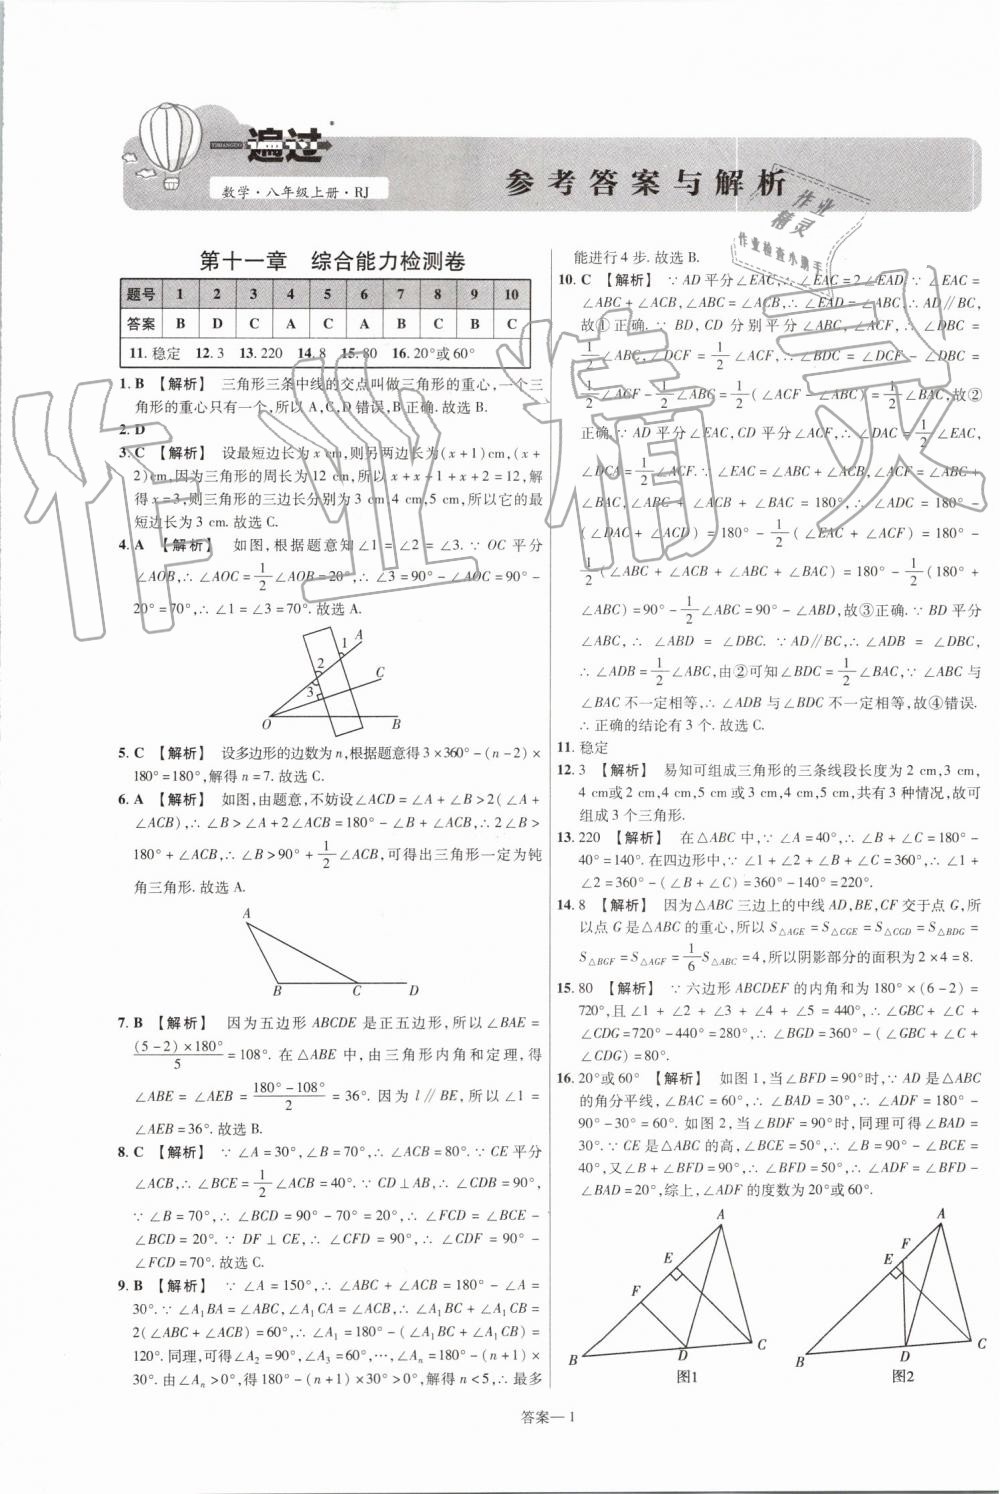 一遍过
YIBIANGUO
数学·八年级上册·RJ
参考答案与解析
作业
精灵
作业检查小助手
第十一章 综合能力检测卷
题号 1 2 3 4 5 6 7 8 9 10
答案 B D C A C A B C B C
11. 稳定 12. 3 13. 220 14. 8 15. 80 16. 20°或 60°
1. B 【解析】 三角形三条中线的交点叫做三角形的重心,一个三
角形的重心只有一个,所以 A,C,D 错误,B 正确. 故选 B.
2. D
3. C 【解析】 设最短边长为 x cm,则另两边长为(x+1)cm,(x+
2)cm,因为三角形的周长为 12 cm,所以 x+x+1+x+2=12,解
得 x=3,则三角形的三边长分别为 3 cm,4 cm,5 cm,所以它的最
短边长为 3 cm. 故选 C.
4. A 【解析】 如图,根据题意知∠1=∠2=∠3. ∵ OC 平分
∠AOB,∴ ∠AOC=1/2∠AOB=20°,∴ ∠3=90°-∠AOC=90°-
20°=70°,∴ ∠1=∠3=70°. 故选 A.
1 A
2 C
3
O B
5. C 【解析】 设多边形的边数为 n,根据题意得 3×360°-(n-2)×
180°=180°,解得 n=7. 故选 C.
6. A 【解析】 如图,由题意,不妨设∠ACD=∠A+∠B>2(∠A+
∠ACB),∴ ∠B>∠A+2∠ACB=180°-∠B+∠ACB,∴ 2∠B>
180°+∠ACB,∴ ∠B>90°+1/2∠ACB,可得出三角形一定为钝
角三角形. 故选 A.
A
B C D
7. B 【解析】 因为五边形 ABCDE 是正五边形,所以∠BAE=
(5-2)×180°/5=108°. 在△ABE 中,由三角形内角和定理,得
∠ABE=∠AEB=180°-108°/2=36°. 因为 l∥BE,所以∠1=
∠AEB=36°. 故选 B.
8. C 【解析】 ∵ ∠A=30°,∠B=70°,∴ ∠ACB=80°. ∵ CE 平分
∠ACB,∴ ∠BCE=1/2∠ACB=40°. ∵ CD⊥AB,∴ ∠CDB=90°,
∵ ∠B=70°,∴ ∠BCD=90°-70°=20°,∴ ∠FCD=∠BCE-
∠BCD=20°. ∵ DF⊥CE,∴ ∠CFD=90°,∴ ∠CDF=90°-
∠FCD=70°. 故选 C.
9. B 【解析】 ∵ ∠A=150°,∴ ∠ABC+∠ACB=180°-∠A=
30°. ∵ ∠A₁BA=∠ABC,∠A₁CA=∠ACB,∴ ∠A₁BC+∠A₁CB=
2(∠ABC+∠ACB)=60°,∴ ∠A₁=180°-(∠A₁BC+∠A₁CB)=
120°. 同理,可得∠A₂=90°,∠A₃=60°,…,∠Aₙ=180°-(n+1)×
30°. 由∠Aₙ>0°,得 180°-(n+1)×30°>0°,解得 n<5,∴ 最多
能进行 4 步. 故选 B.
10. C 【解析】 ∵ AD 平分∠EAC,∴ ∠EAC=2∠EAD. ∵ ∠EAC=
∠ABC+∠ACB,∠ABC=∠ACB,∴ ∠EAD=∠ABC,∴ AD∥BC,
故①正确. ∵ BD,CD 分别平分∠ABC,∠ACF,∴ ∠DBC=
1/2∠ABC,∠DCF=1/2∠ACF,∴ ∠BDC=∠DCF-∠DBC=
1/2∠ACF-1/2∠ABC=1/2(∠ACF-∠ABC)=1/2∠BAC,故②
正确. ∵ AD 平分∠EAC,CD 平分∠ACF,∴ ∠DAC=1/2∠EAC,
∠DCA=1/2∠ACF. ∵ ∠EAC=∠ABC+∠ACB,∠ACF=∠ABC+
∠BAC,∠ABC+∠ACB+∠BAC=180°,∴ ∠ADC=180°-
(∠DAC+∠ACD)=180°-1/2(∠EAC+∠ACF)=180°-
1/2(∠ABC+∠ACB+∠ABC+∠BAC)=180°-1/2(180°+
∠ABC)=90°-1/2∠ABC=90°-∠ABD,故③正确. ∵ BD 平分
∠ABC,∴ ∠ABD=∠DBC. ∵ AD∥BC,∴ ∠ADB=∠DBC,
∴ ∠ADB=1/2∠ABC,由②可知∠BDC=1/2∠BAC,∵ ∠ABC 与
∠BAC 不一定相等,∴ ∠ADB 与∠BDC 不一定相等,故④错误.
∴ 正确的结论有 3 个. 故选 C.
11. 稳定
12. 3 【解析】 易知可组成三角形的三条线段长度为 2 cm,3 cm,
4 cm或 2 cm,4 cm,5 cm 或 3 cm,4 cm,5 cm,共有 3 种情况,故可
组成 3 个三角形.
13. 220 【解析】 在△ABC 中,∵ ∠A=40°,∴ ∠B+∠C=180°-
40°=140°. 在四边形中,∵ ∠1+∠2+∠B+∠C=360°,∴ ∠1+
∠2=360°-(∠B+∠C)=360°-140°=220°.
14. 8 【解析】 因为△ABC 三边上的中线 AD,BE,CF 交于点 G,所
以点 G 是△ABC 的重心,所以 S△AGE=S△CGE=S△CGD=S△BDG=
S△BGF=S△AGF=1/6S△ABC=4,所以阴影部分的面积为 2×4=8.
15. 80 【解析】 ∵ 六边形 ABCDEF 的内角和为 180°×(6-2)=
720°,且∠1+∠2+∠3+∠4+∠5=440°,∴ ∠GBC+∠C+
∠CDG=720°-440°=280°,∴ ∠BGD=360°-(∠GBC+∠C+
∠CDG)=80°.
16. 20°或 60° 【解析】 如图 1,当∠BFD=90°时,∵ AD 是△ABC
的角分平线,∠BAC=60°,∴ ∠BAD=30°,∴ ∠ADF=180°-
90°-30°=60°. 如图 2,当∠BDF=90°时,同理可得∠BAD=
30°. ∵ CE 是△ABC 的高,∠BCE=50°,∴ ∠B=90°-∠BCE=
40°,又∠B+∠BFD=90°,∴ ∠BFD=50°,∴ ∠ADF=∠BFD-
∠BAD=20°,综上,∠ADF 的度数为 20°或 60°.
A
E
F
B D C
图1
A
F
E
B D C
图2
作业精灵
答案— 1